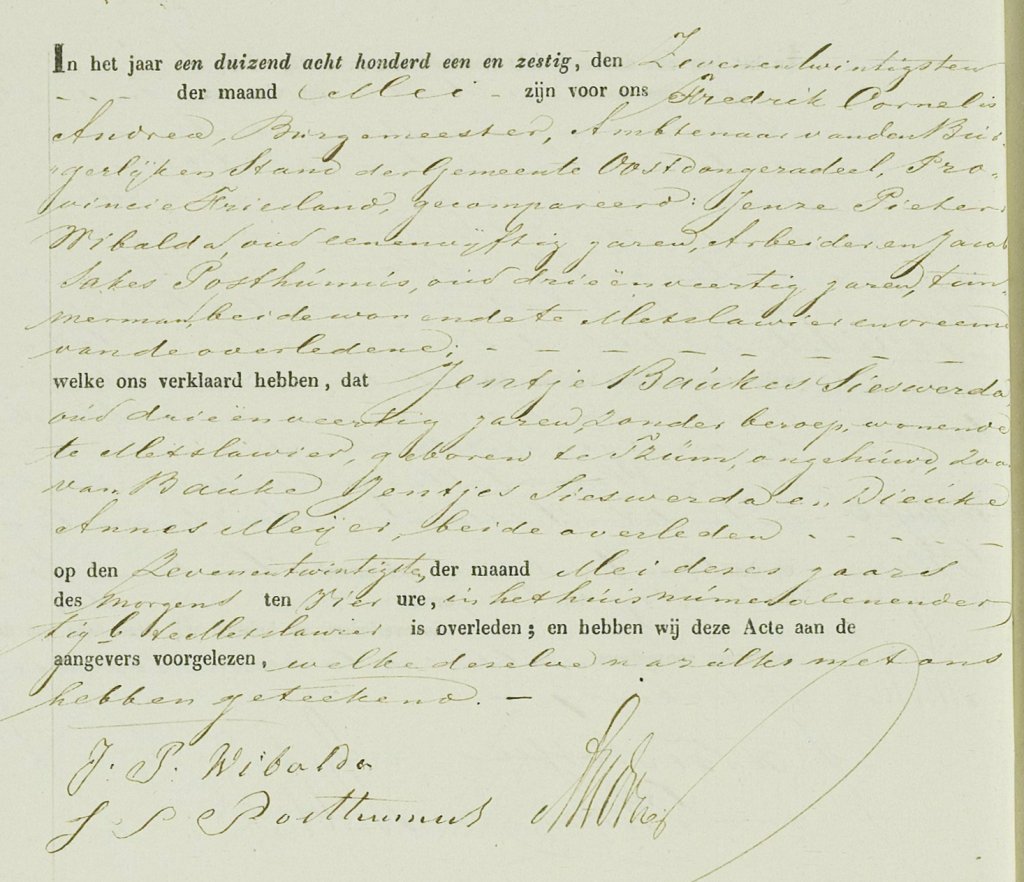 In het jaar een duizend acht honderd een en zestig, den Zevenentwintigsten
- - - der maand Mei - zijn voor ons Fredrik Cornelis
Andreæ, Burgemeester, Ambtenaar van den Bur-
"gerlijken Stand der Gemeente Oostdongeradeel, Pro-
vincie Friesland, gecompareerd: Jenze Pieters
Wibalda, oud eenenvijftig jaren, Arbeider en Jacob
Sakes Posthúmús, oúd drieënveertig jaren, tim-
merman, beide wonende te Metslawier en vreemd
van de overledene; - - - - - - -
welke ons verklaard hebben, dat Jentje Baúkes Sieswerda
oúd drieënveertig jaren, zonder beroep, wonende
te Metslawier, geboren te Tzúm, ongehúwd, zoon
van Baúke Jentjes Sieswerda en Dieúke
Annes Meijer, beide overleden - - - - - -
op den Zevenentwintigsten der maand Mei dezes jaars
des morgens ten Vier ure, in het húis número eenender
tig b te Metslawier is overleden; en hebben wij deze Acte aan de
aangevers voorgelezen, welke dezelve na zúlks met ons
hebben geteekend. -
J. P. Wibalda
J S Posthumus